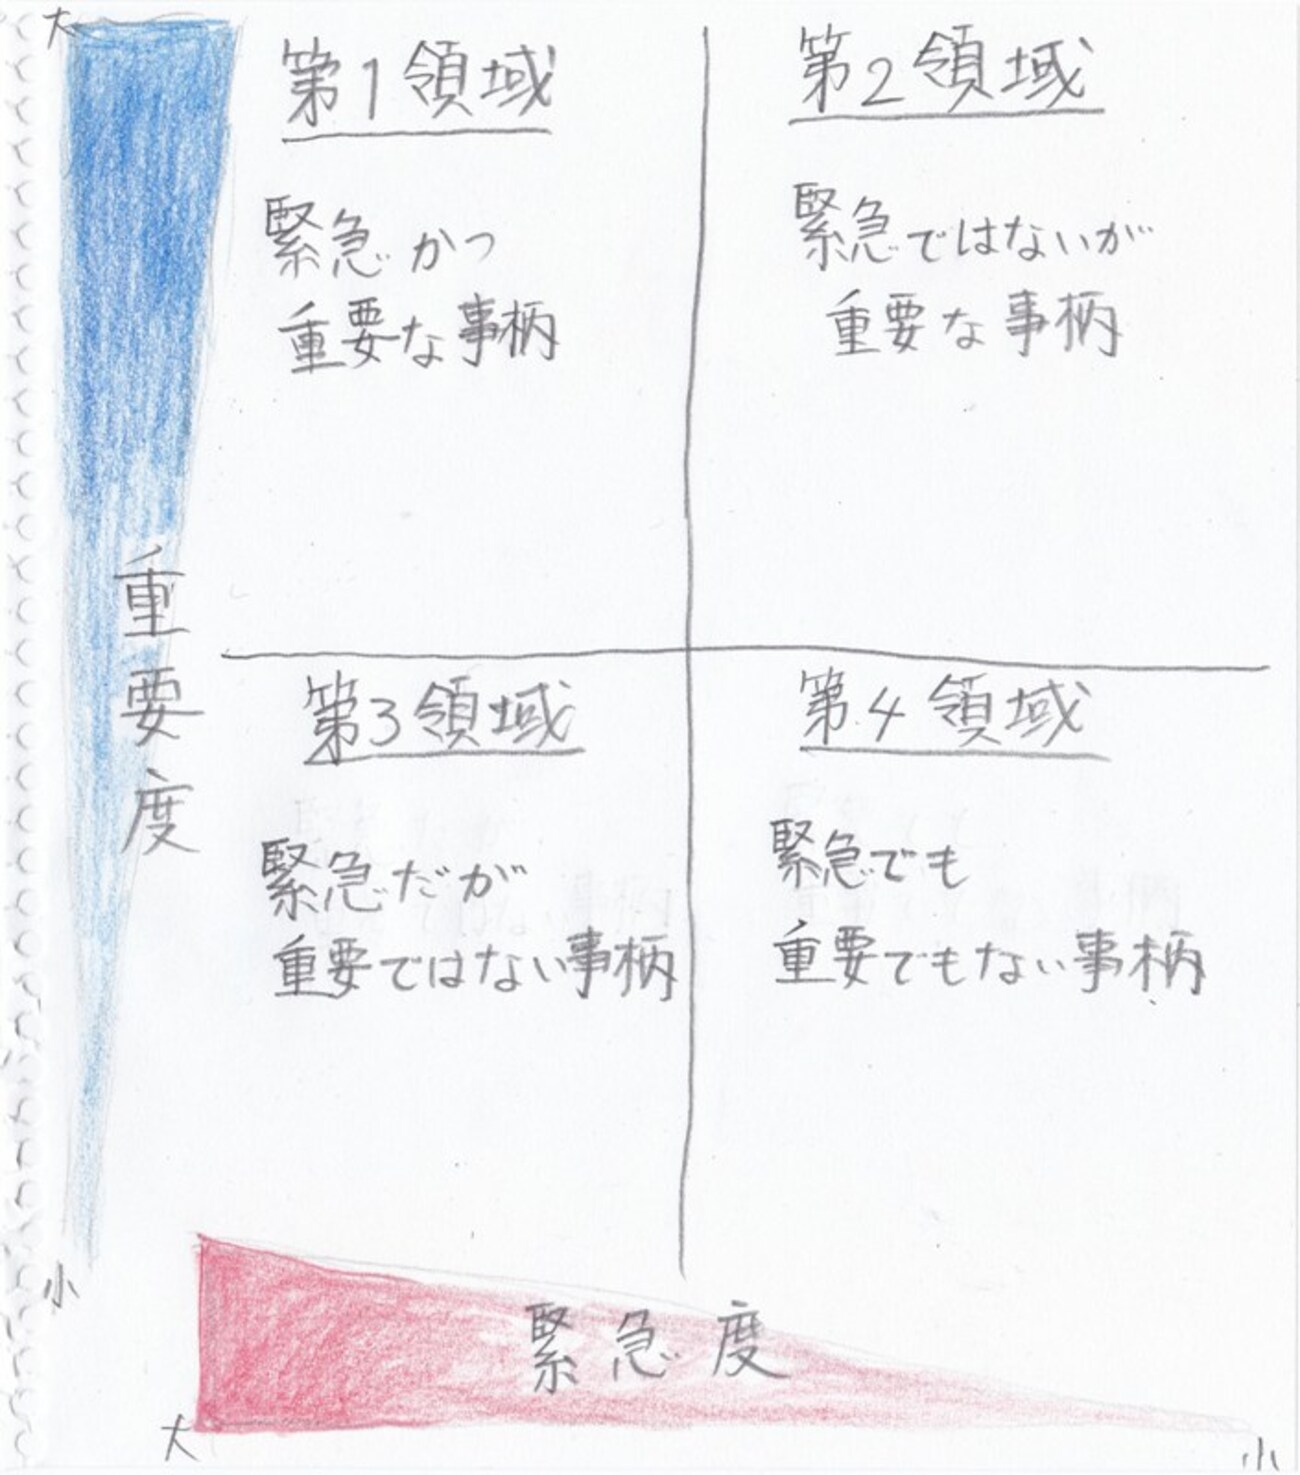 大
第1領域
緊急かつ
重要な事柄
第2領域
緊急ではないが
重要な事柄
重要度
第3領域
緊急だが
重要ではない事柄
第4領域
緊急でも
重要でもない事柄
小
緊急度
大
小